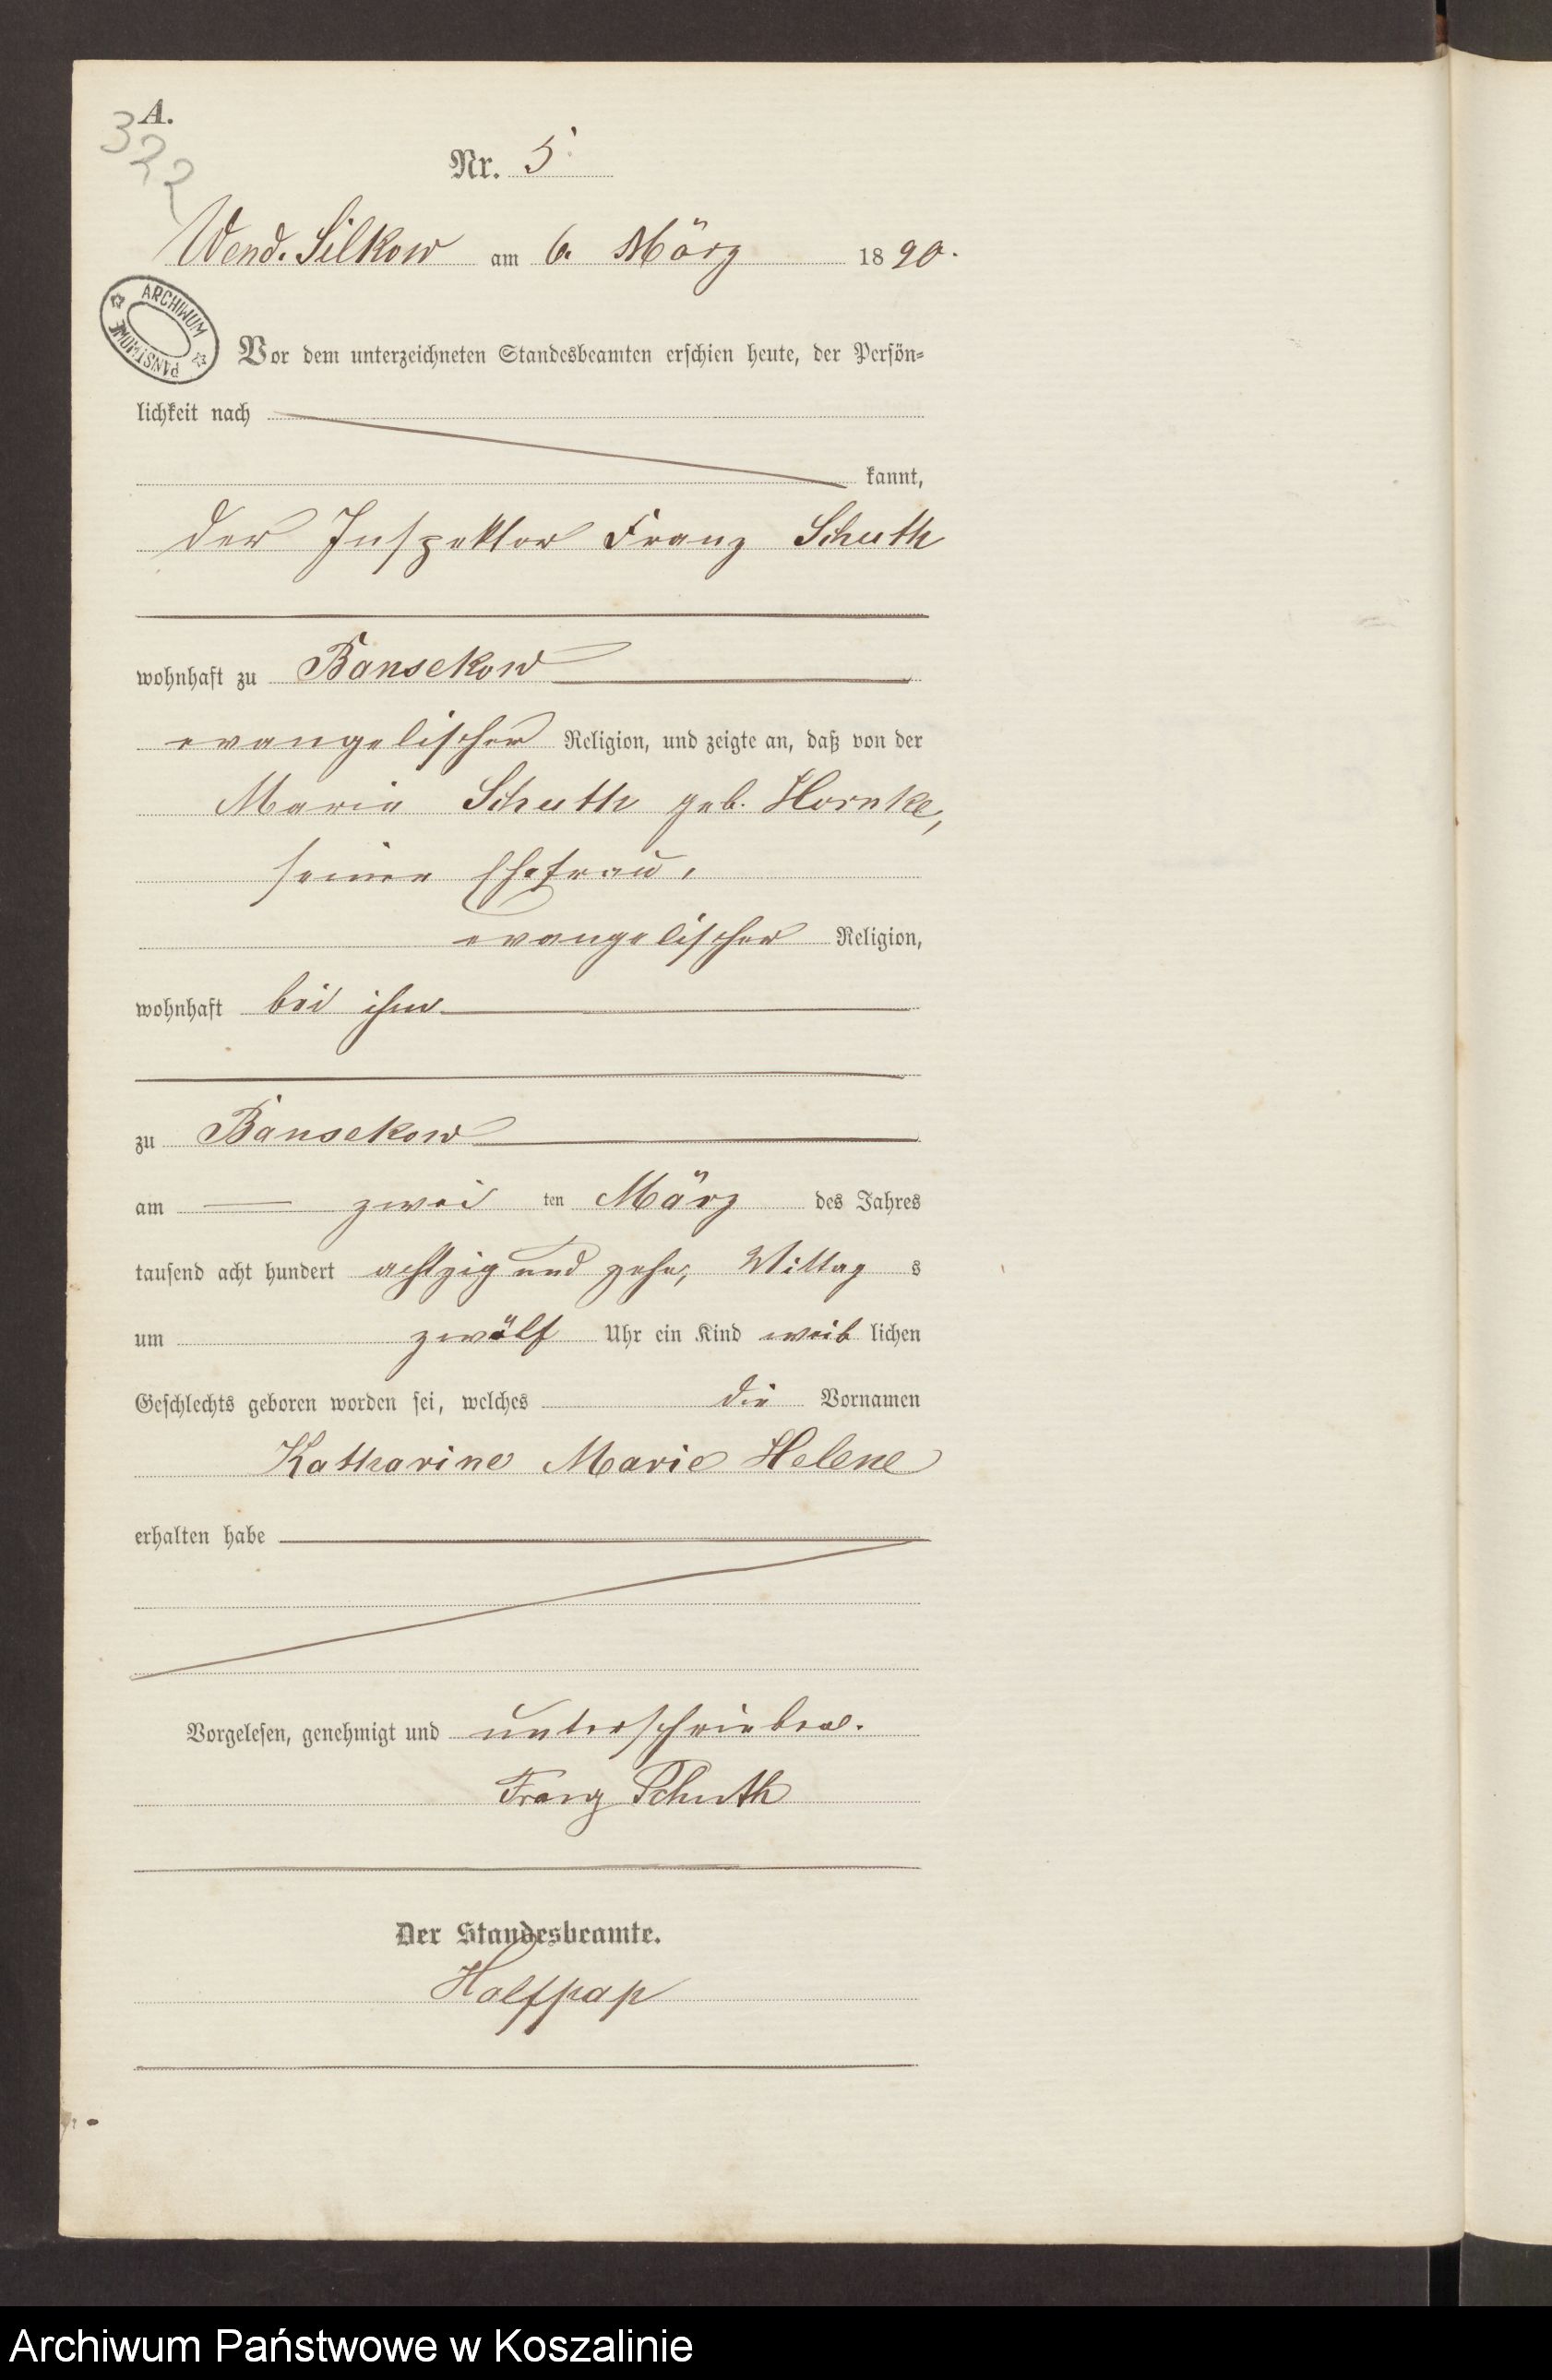 A.
322
Nr. 5
Wend. Silkow am 6. März 1890.
ARCHIWUM PAŃSTWOWE
Vor dem unterzeichneten Standesbeamten erschien heute, der Persön-
lichkeit nach
kannt,
der Inspektor Franz Schuth
wohnhaft zu Bansekow
evangelischer Religion, und zeigte an, daß von der
Marie Schuth geb. Hornke,
seiner Ehefrau,
evangelischer Religion,
wohnhaft bei ihm
zu Bansekow
am zwei ten März des Jahres
tausend acht hundert achtzig und zehn, Mittag s
um zwölf Uhr ein Kind weib lichen
Geschlechts geboren worden sei, welches die Vornamen
Katharine Marie Helene
erhalten habe
Vorgelesen, genehmigt und unterschrieben.
Franz Schuth
Der Standesbeamte.
Halfpap
Archiwum Państwowe w Koszalinie